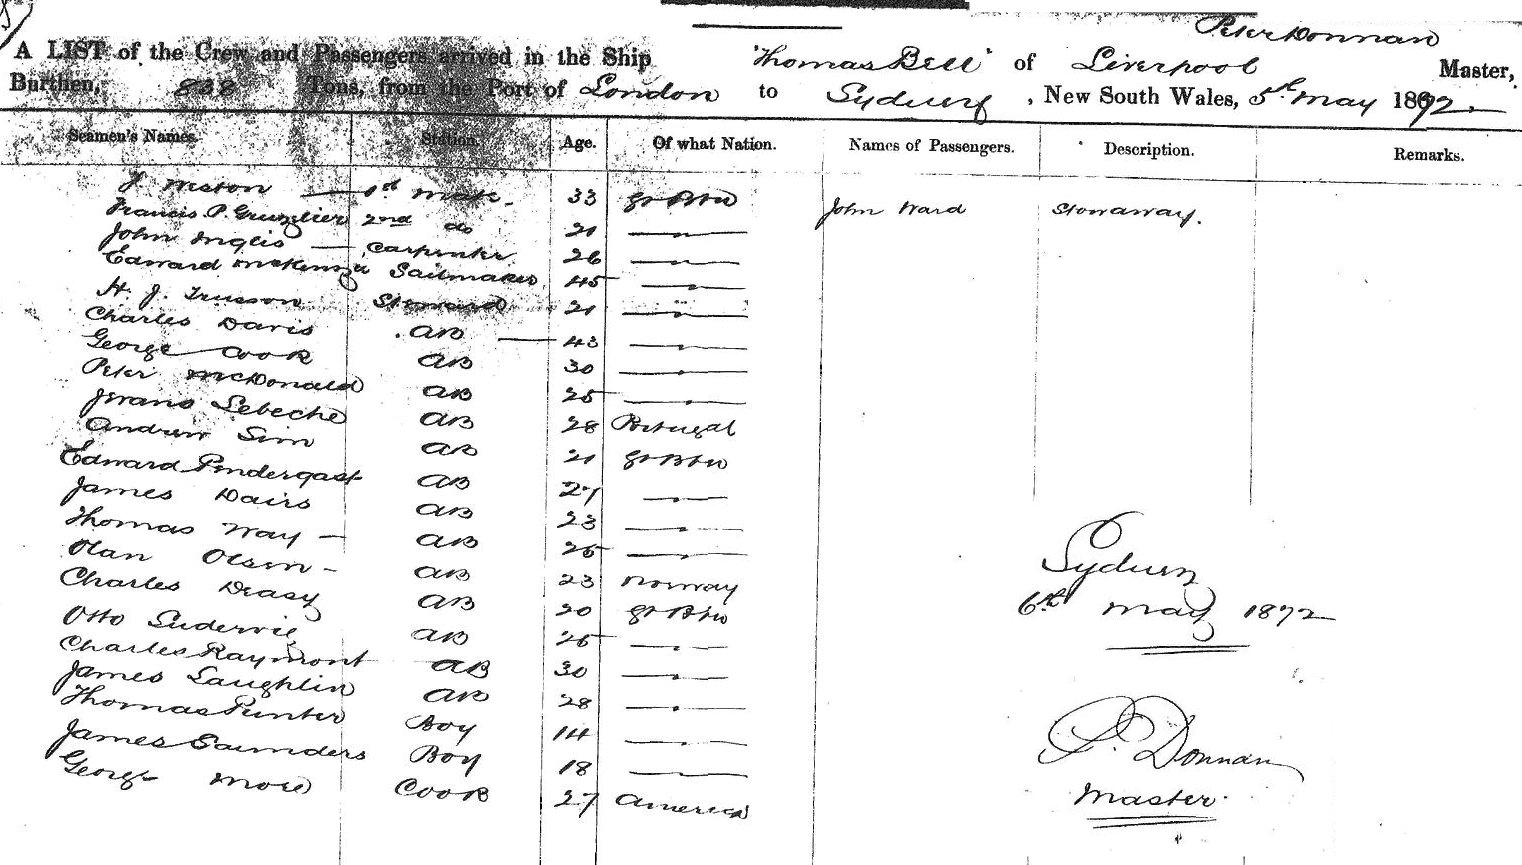 Peter Donnan
A LIST of the Crew and Passengers arrived in the Ship "Thomas Bell" of Liverpool Master,
Burthen, 838 Tons, from the Port of London to Sydney, New South Wales, 5th May 1872
Seamen's Names. Station. Age. Of what Nation. Names of Passengers. Description. Remarks.
J. Weston — 1st Mate. 33 Gt Btn John Ward Stowaway.
Francis P. Gruzelier 2nd do 21 — " —
John Inglis — Carpenter 26 — " —
Edward McKenzie Sailmaker 45 — " —
H. J. Trusson Steward 21 — " —
Charles Davis AB — 43 — " —
George Cook AB 30 — " —
Peter McDonald AB 25 — " —
Lebeche AB 28 Portugal
Andrew Sim AB 21 Gt Btn
Edward Pendergast AB 27 — " —
James Dairs AB 23 — " —
Thomas Way — AB 25 — " —
Olan Olsen - AB 23 Norway
Charles Deasy AB 20 Gt Btn
Otto AB 25 — " —
Charles Raymont AB 30 — " —
James Laughlin AB 28 — " —
Thomas Punter Boy 14 — " —
James Saunders Boy 18 — " —
George More Cook 27 America
Sydney
6th May 1872
P. Donnan
Master